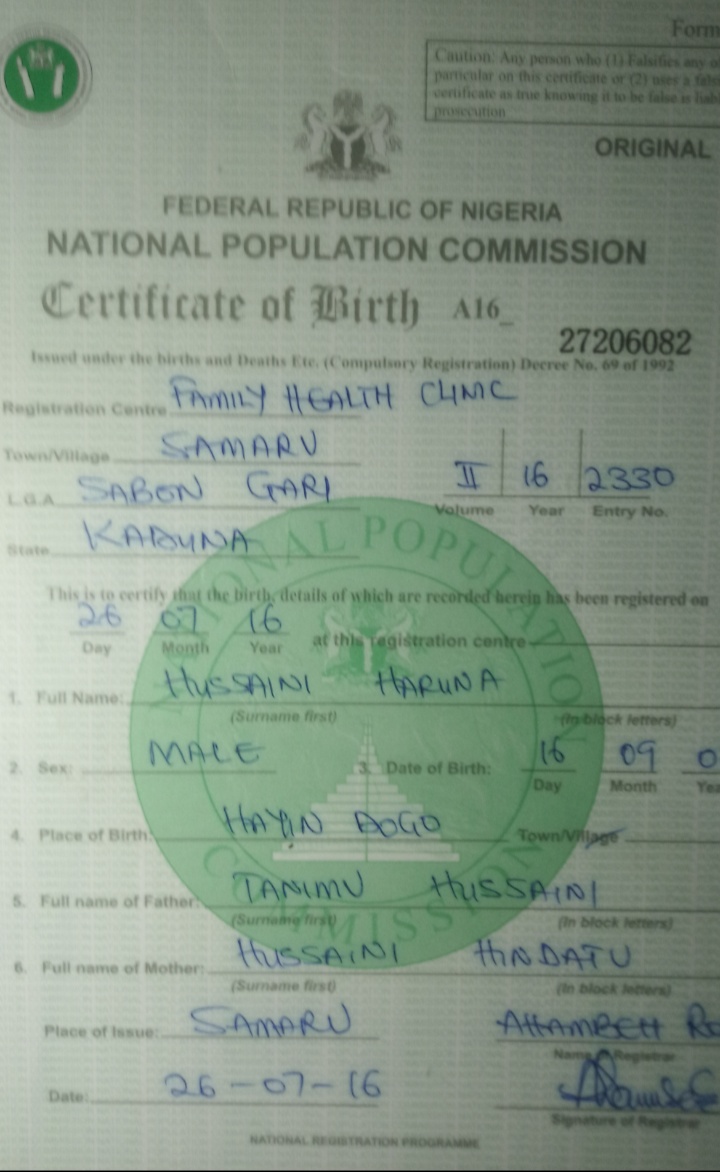 Form
Caution: Any person who (1) Falsifies any
particular on this certificate or (2) uses a
certificate as true knowing it to be false is
prosecution
ORIGINAL
FEDERAL REPUBLIC OF NIGERIA
NATIONAL POPULATION COMMISSION
Certificate of Birth A16_
27206082
Issued under the births and Deaths Etc. (Compulsory Registration) Decree No. 69 of 1992
Registration Centre FAMILY HEALTH CLINIC
Town/Village SAMARU
L.G.A SABON GARI II 16 2330
Volume Year Entry No.
State KADUNA
This is to certify that the birth, details of which are recorded herein has been registered on
26 07 16 at this registration centre
Day Month Year
1. Full Name: HUSSAINI HARUNA
(Surname first) (In block letters)
2. Sex: MALE 3. Date of Birth: 16 09 0
Day Month
4. Place of Birth: HAYIN DOGO Town/Village
5. Full name of Father: TANIMU HUSSAINI
(Surname first) (In block letters)
6. Full name of Mother: HUSSAINI HINDATU
(Surname first) (In block letters)
Place of Issue: SAMARU
Name Registrar
Date: 26-07-16
Signature of Registrar
NATIONAL REGISTRATION PROGRAMME
NATIONAL POPULATION COMMISSION